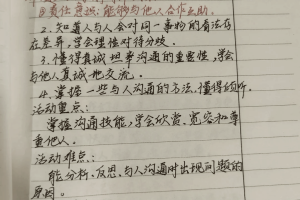 责任意识：能够与他人合作互助。
2.知道人与人会对同一事物的看法存
在差异，学会理性对待分歧。
3.懂得真诚坦率沟通的重要性，学会
与他人真诚地交流。
4.掌握一些与人沟通的方法，懂得倾听。
活动重点：
掌握沟通技能，学会欣赏、宽容和尊
重他人。
活动难点：
能分析、反思，与人沟通时出现问题的
原因。